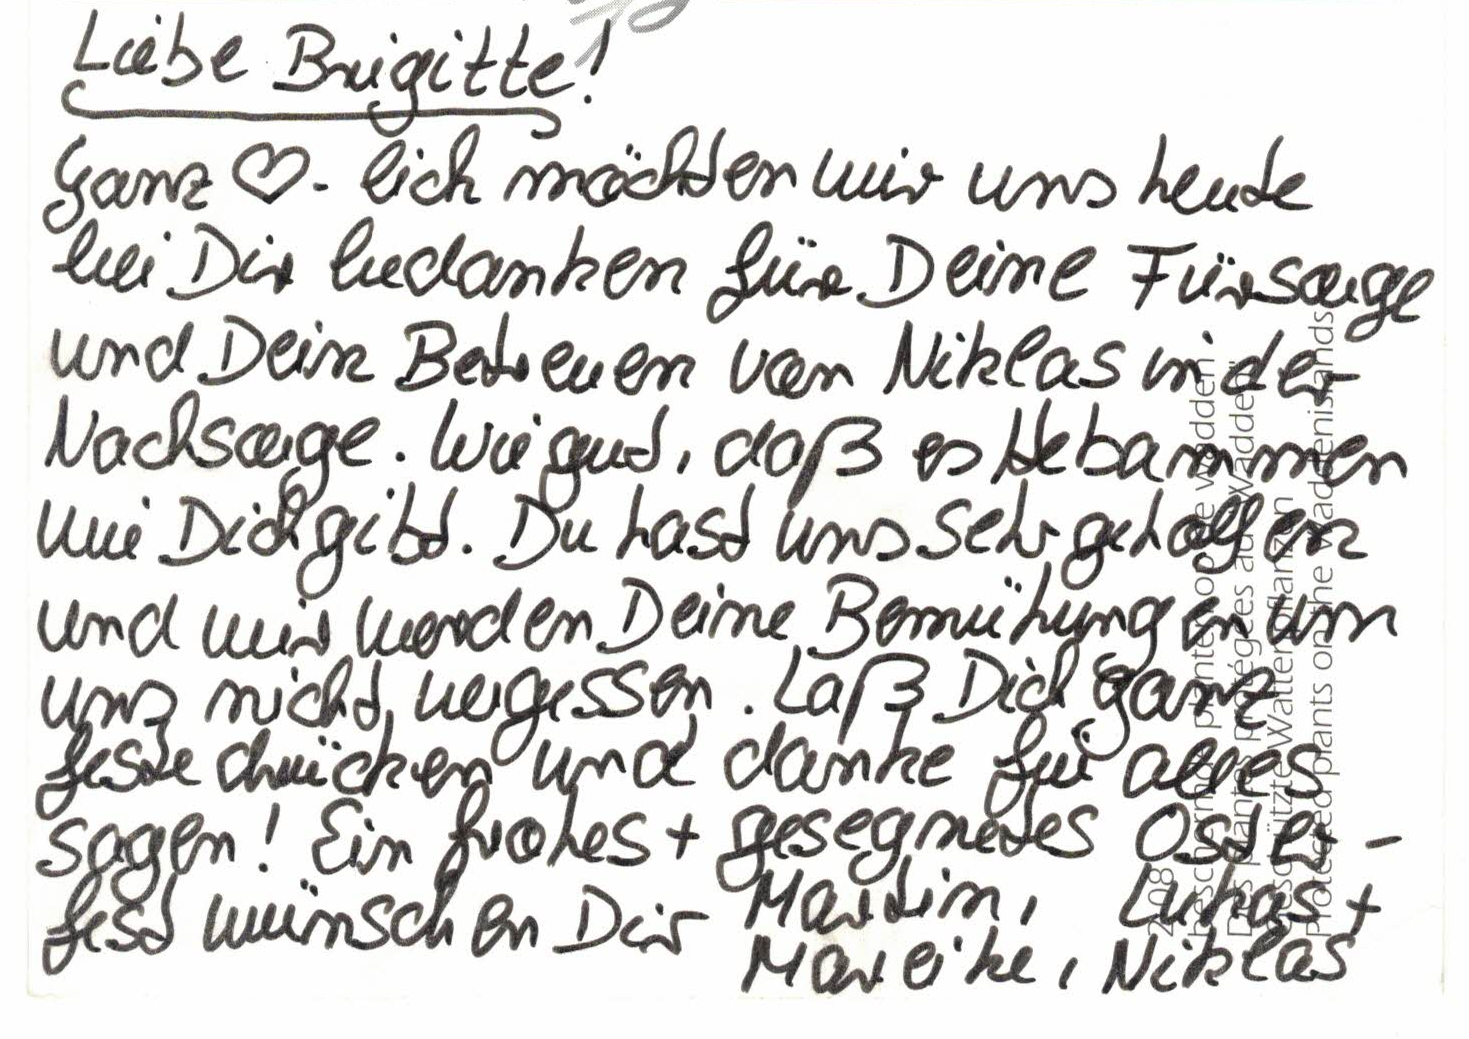 Liebe Brigitte!
Ganz ♡-lich möchten wir uns heute
bei Dir bedanken für Deine Fürsorge
und Dein Betreuen von Niklas in der
Nachsorge. Wie gut, daß es Hebammen
wie Dich gibt. Du hast uns sehr geholfen
und wir werden Deine Bemühungen um
uns nicht vergessen. Laß Dich ganz
feste drücken und danke für alles
sagen! Ein frohes + gesegnetes Oster-
fest wünschen Dir Martin, Lukas +
Mareike, Niklas
Protected plants on the Wadden islands